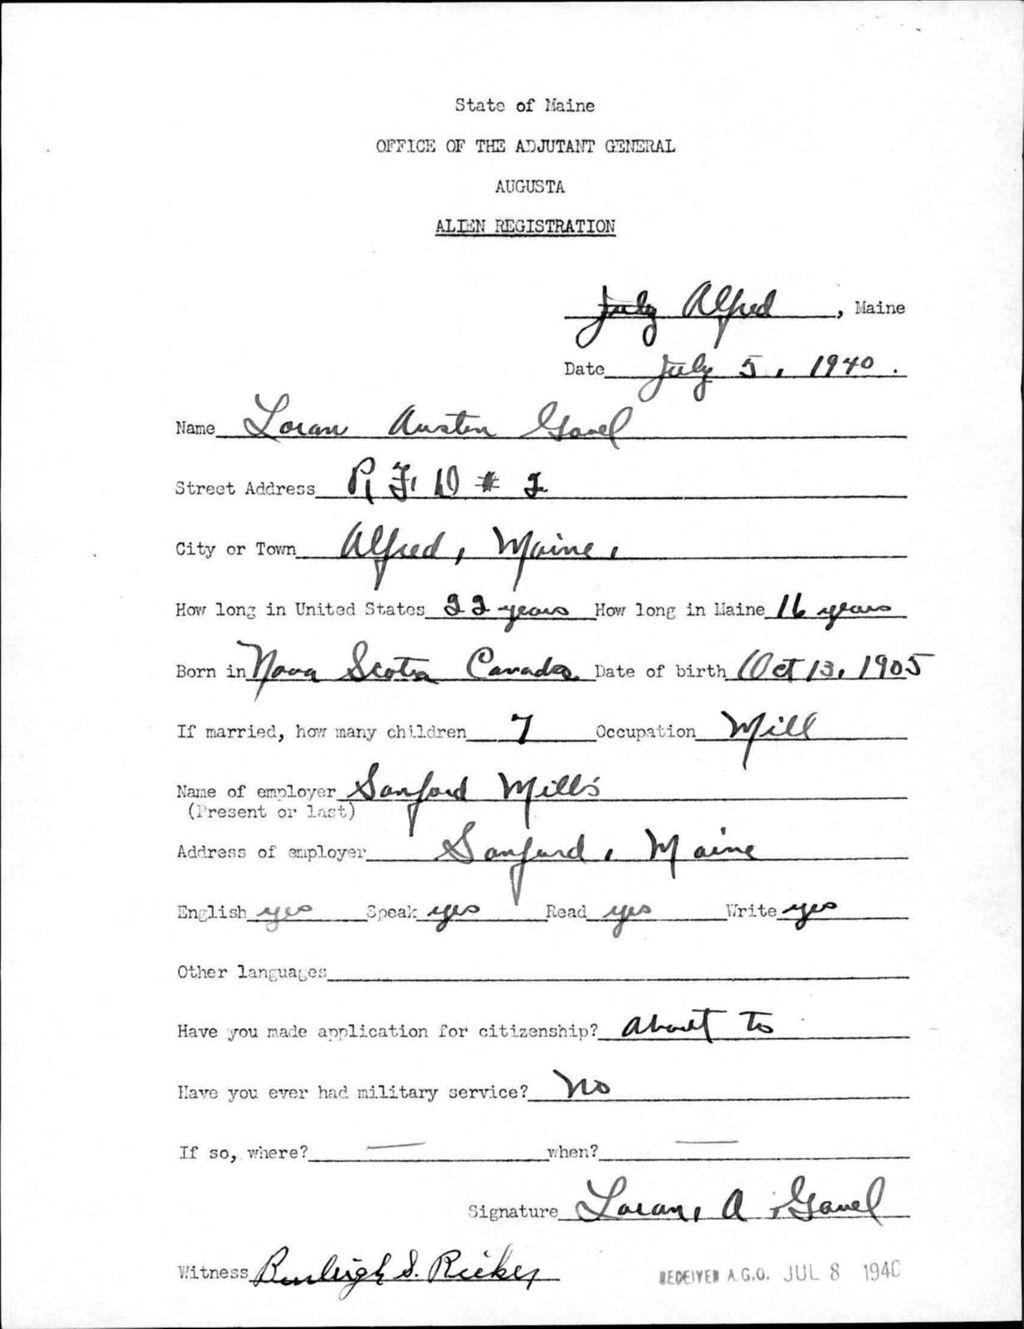 State of Maine
OFFICE OF THE ADJUTANT GENERAL
AUGUSTA
ALIEN REGISTRATION
July Alfred, Maine
Date July 5, 1940.
Name Loran Austin Gavel
Street Address R. F. D # 2
City or Town Alfred, Maine,
How long in United States 22 years How long in Maine 16 years
Born in Nova Scotia Canada Date of birth Oct 13, 1905
If married, how many children 7 Occupation Mill
Name of employer Sanford Mills
(Present or last)
Address of employer Sanford, Maine
English yes Speak yes Read yes Write yes
Other languages
Have you made application for citizenship? About to
Have you ever had military service? No
If so, where? — when? —
Signature Loran, A. Gavel
Witness Burleigh S. Ricker
RECEIVED A.G.O. JUL 8 1940